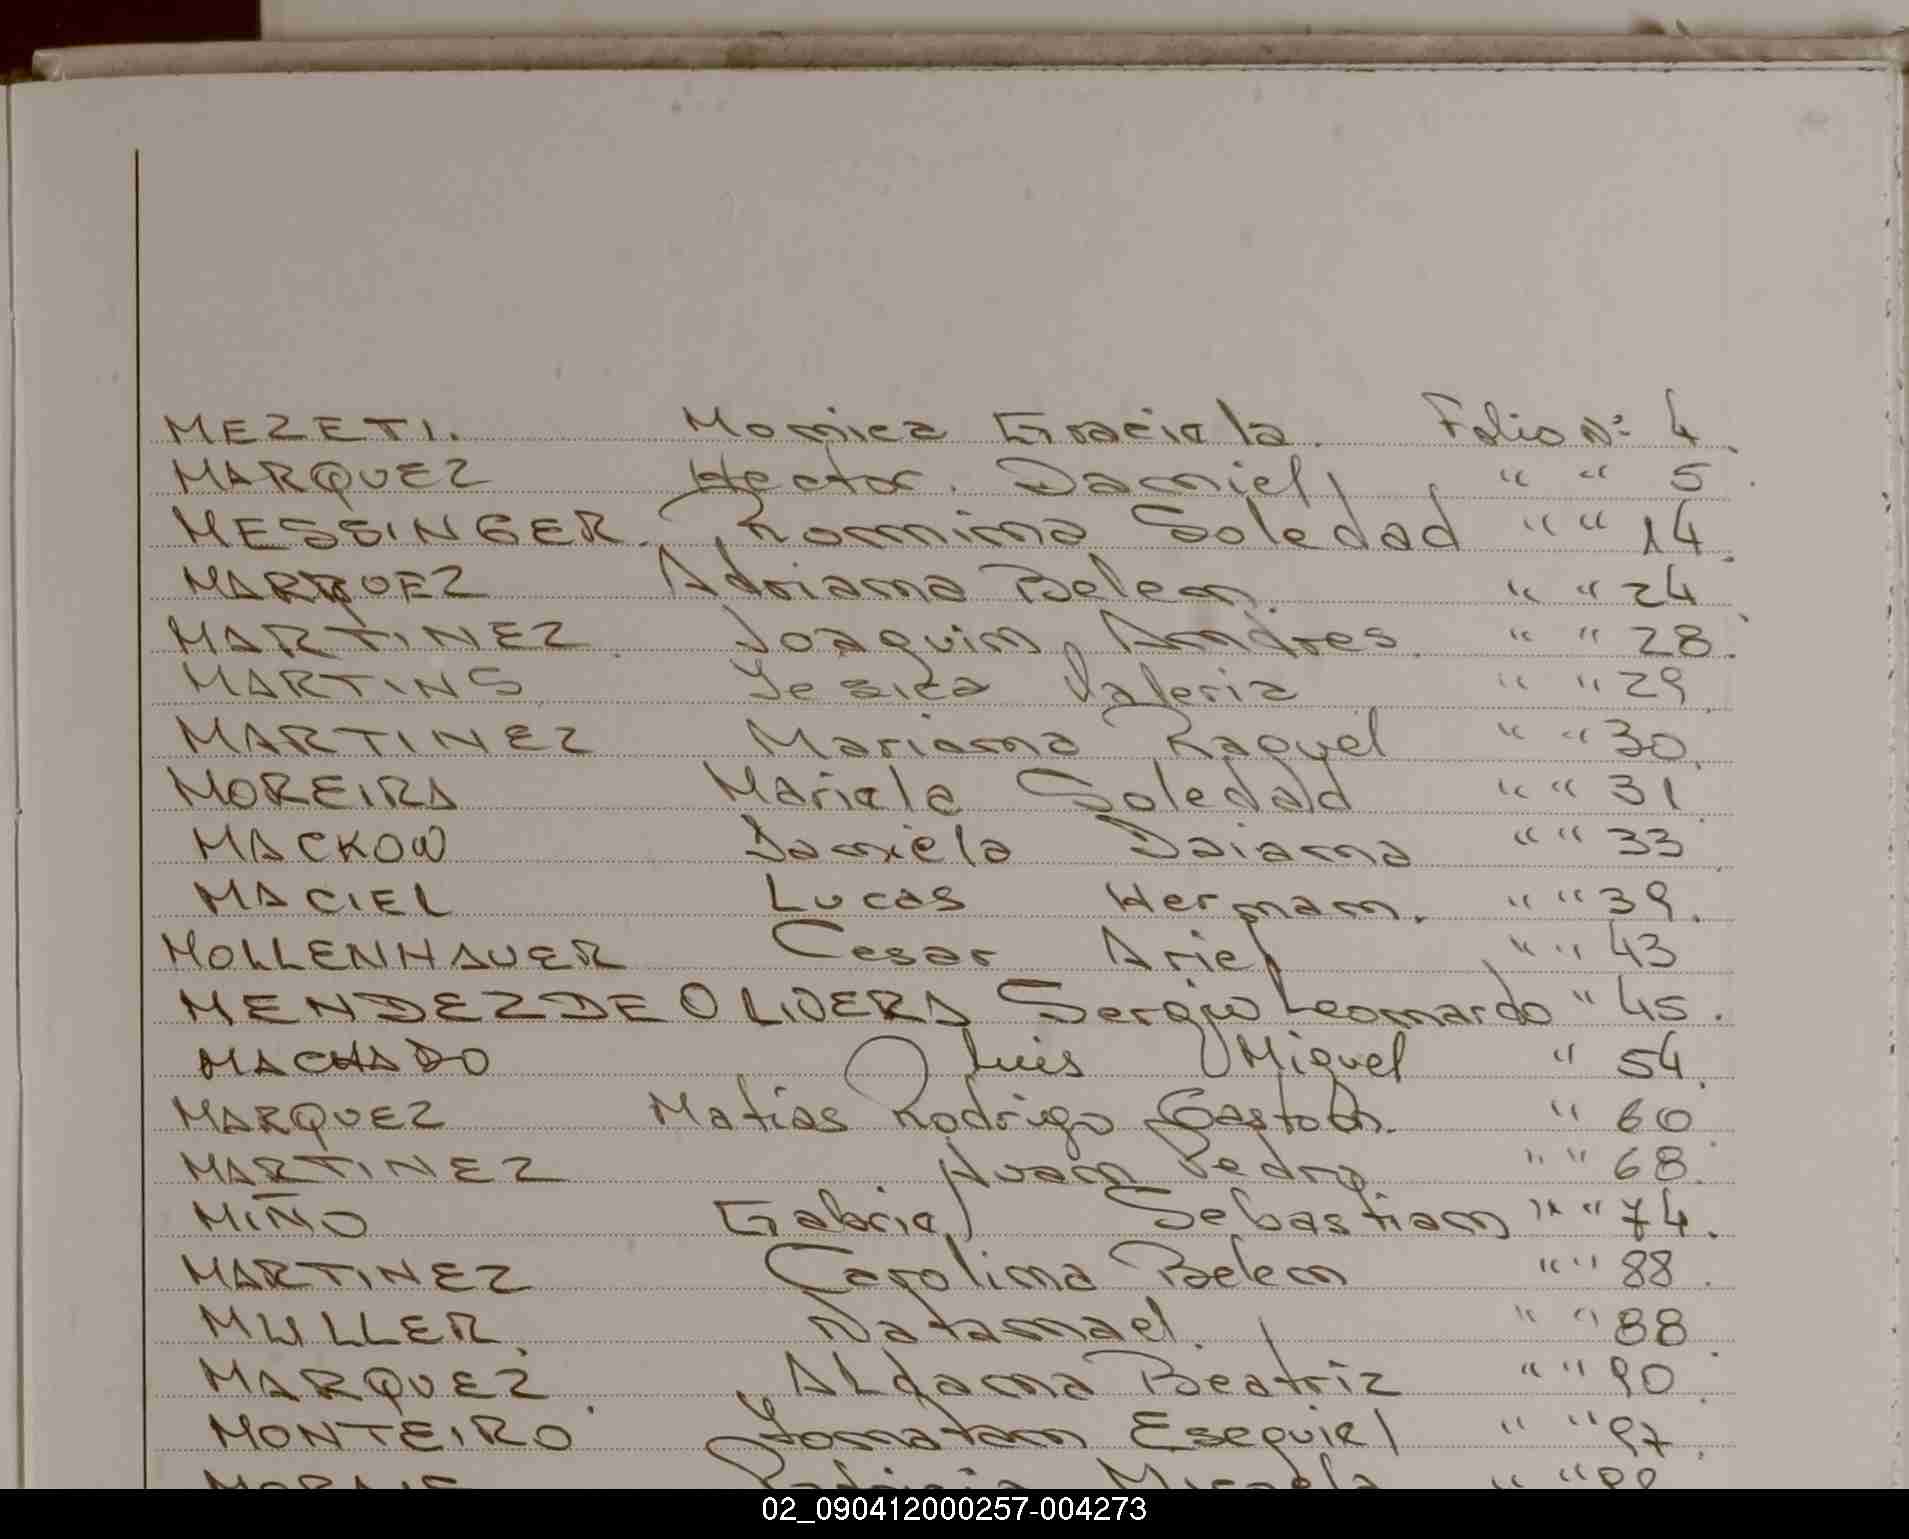 MEZETI. Monica Graciela. Folio Nº 4.
MARQUEZ Hector. Daniel " " 5.
MESSINGER. Rommina Soledad " " 14.
MARQUEZ Adriana Belen. " " 24.
MARTINEZ. Joaquin Andres. " " 28.
MARTINS Yesica Valeria " " 29.
MARTINEZ Mariana Raquel " " 30.
MOREIRA Mariela Soledad " " 31
MACKOW Daniela Daiana " " 33.
MACIEL Lucas Hernan. " " 39.
MOLLENHAUER Cesar Ariel " " 43
MENDEZ DE OLIVERA Sergio Leonardo " 45.
MACHADO Luis Miguel " 54.
MARQUEZ Matias Rodrigo Gaston. " 60
MARTINEZ Juan Pedro " " 68.
MIÑO Gabriel Sebastian " " 74.
MARTINEZ Carolina Belen " " 88.
MULLER. Natanael. " " 88
MARQUEZ Aldana Beatriz " " 90.
MONTEIRO Yonatan Esequiel " " 97.
02_090412000257-004273